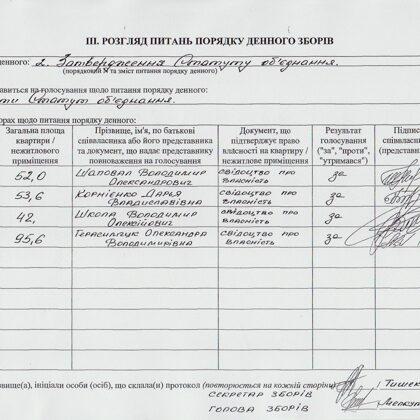 III. РОЗГЛЯД ПИТАНЬ ПОРЯДКУ ДЕННОГО ЗБОРІВ
денного: 2. Затвердження Статуту об'єднання.
(порядковий № та зміст питання порядку денного)
авиться на голосування щодо питання порядку денного:
ти Статут об'єднання.
орах щодо питання порядку денного:
Загальна площа квартири / нежитлового приміщення
Прізвище, ім'я, по батькові співвласника або його представника та документ, що надає представнику повноваження на голосування
Документ, що підтверджує право власності на квартиру / нежитлове приміщення
Результат голосування ("за", "проти", "утримався")
Підпис співвласн (представн
52,0 Шаповал Володимир Олександрович свідоцтво про власність за
53,6 Корнієнко Дар'я Владиславівна свідоцтво про власність за
42, Школа Володимир Олексійович свідоцтво про власність за
95,6 Герасимчук Олександра Володимирівна свідоцтво про власність за
звище(а), ініціали особи (осіб), що склала(и) протокол (повторюється на кожній сторінці) Тишек
СЕКРЕТАР ЗБОРІВ
ГОЛОВА ЗБОРІВ